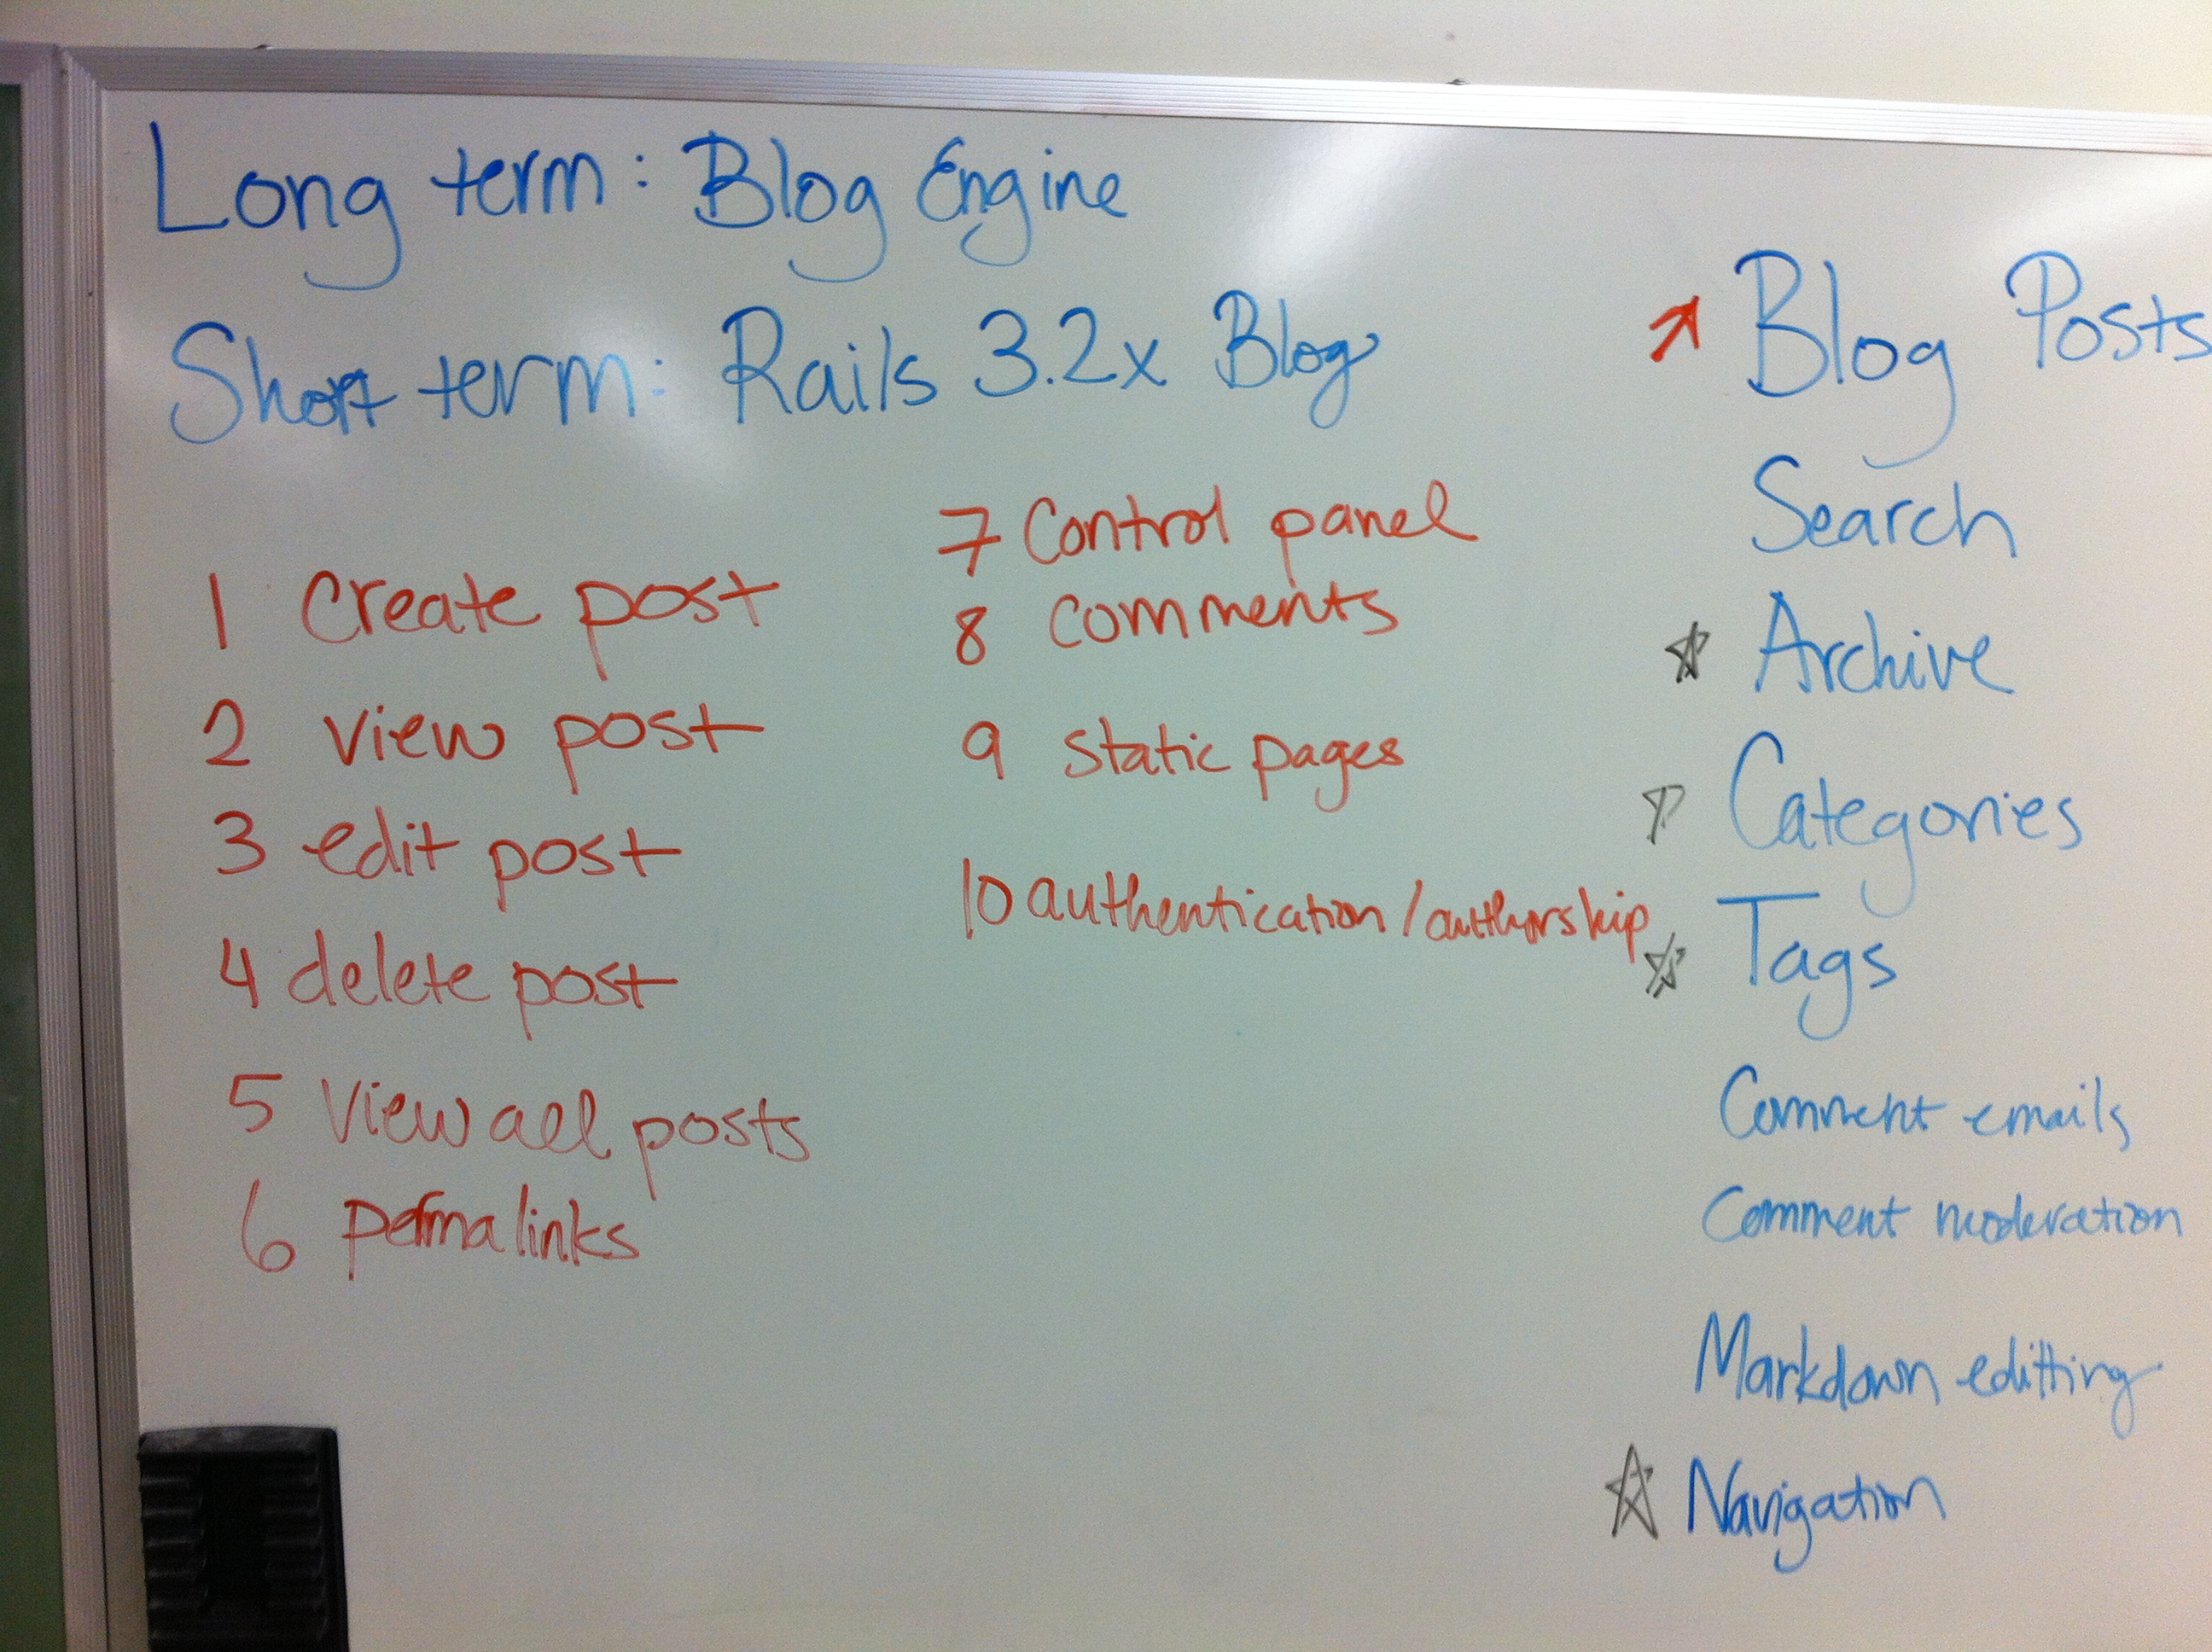 Long term: Blog Engine
Short term: Rails 3.2x Blog
1 create post
2 view post
3 edit post
4 delete post
5 View all posts
6 permalinks
7 Control panel
8 comments
9 static pages
10 authentication/authorship
Blog Posts
Search
Archive
Categories
Tags
Comment emails
Comment moderation
Markdown editting
Navigation